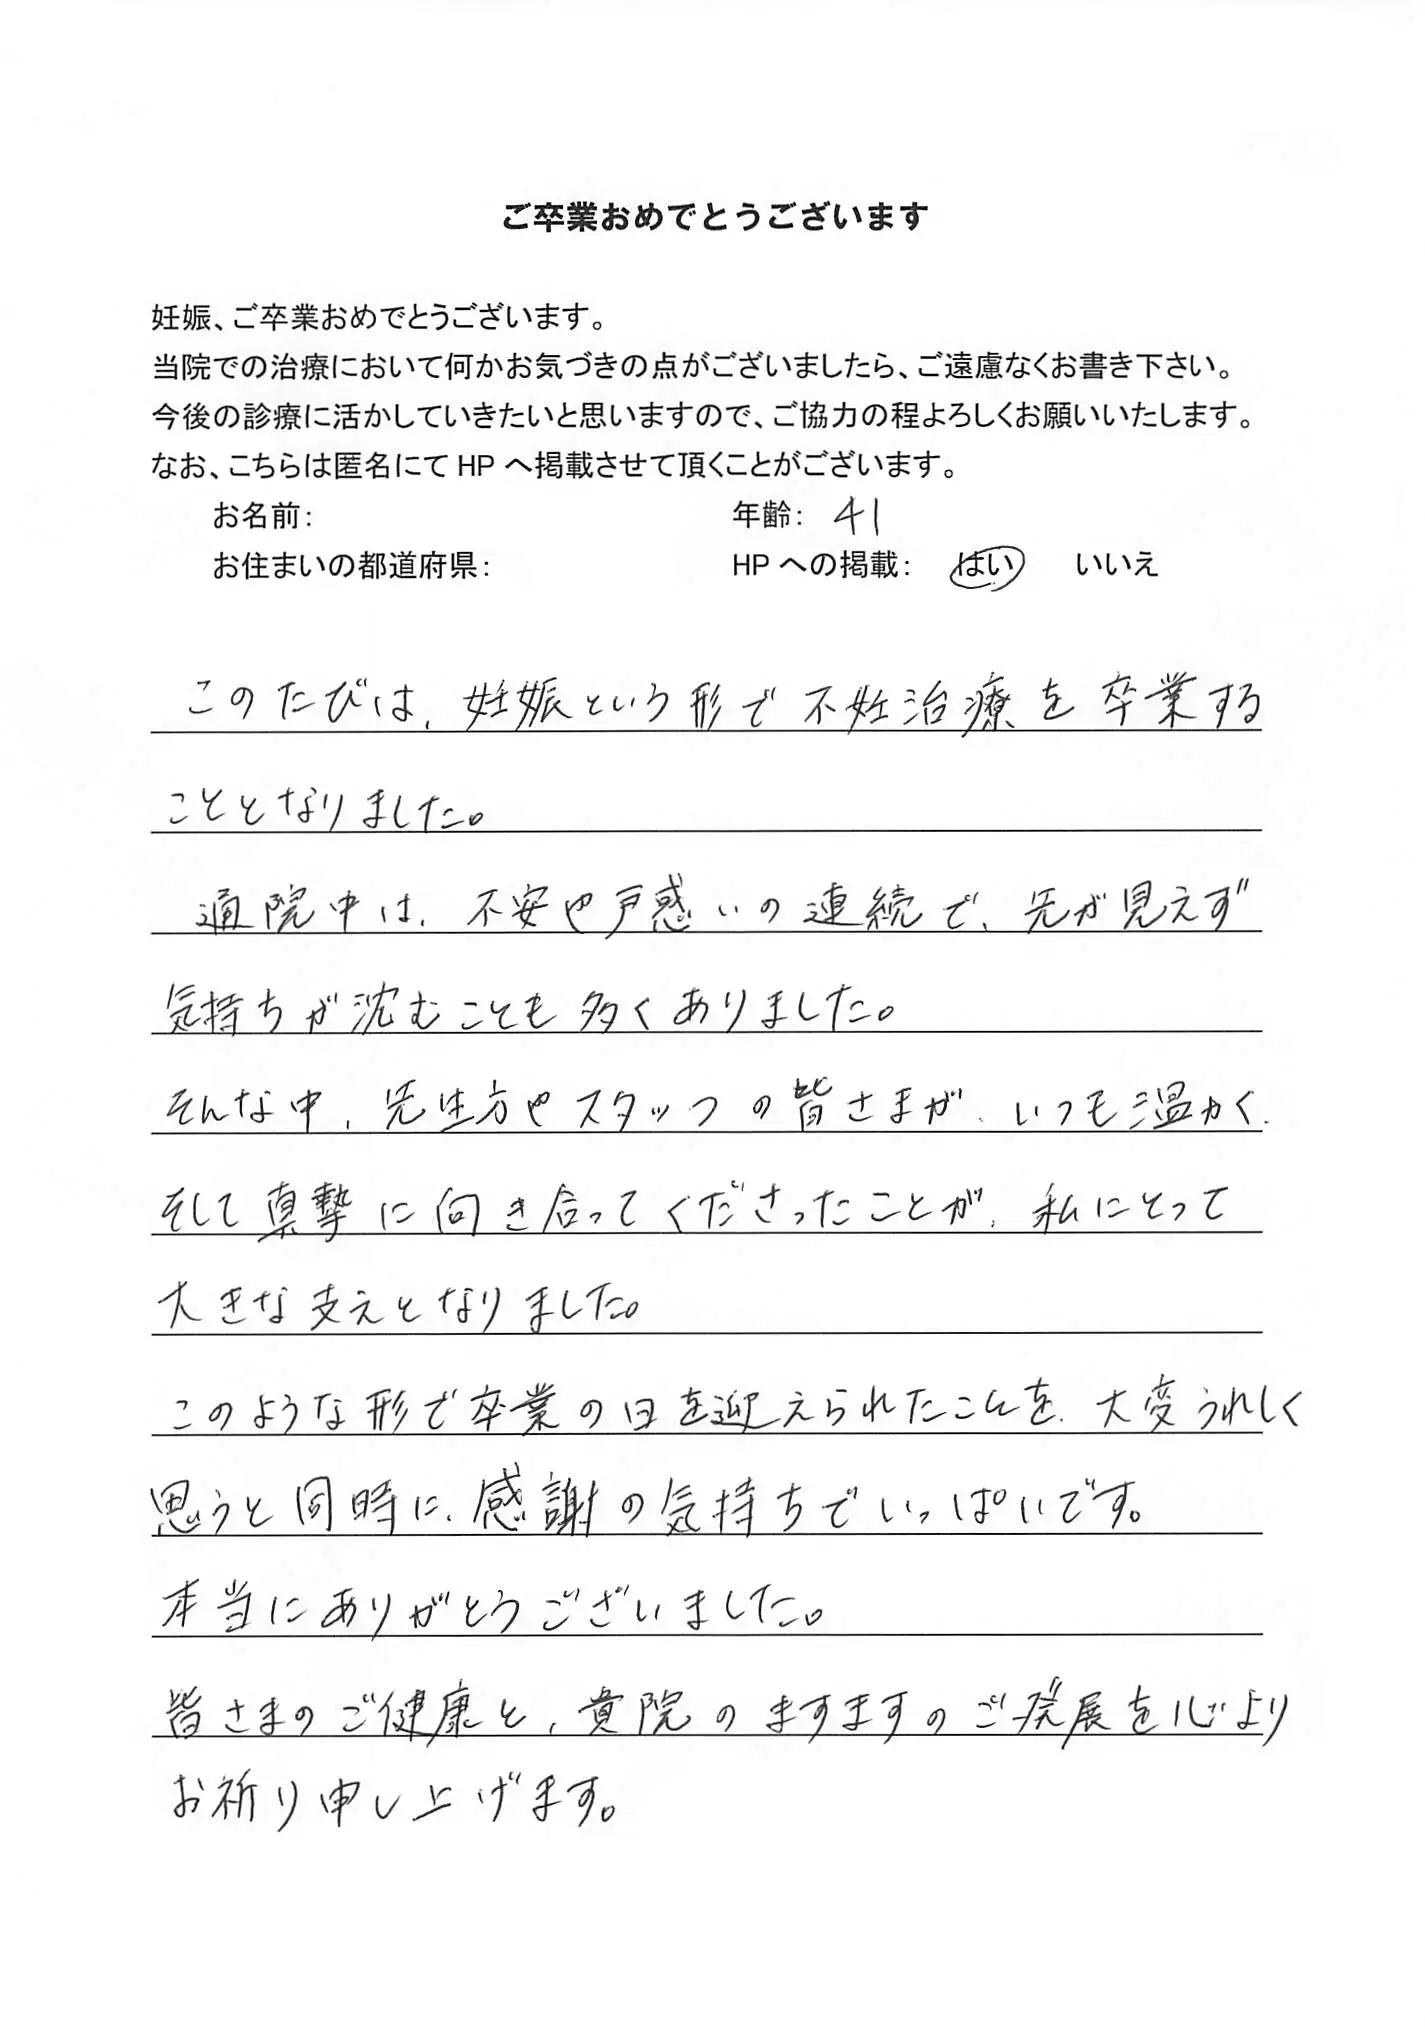 ご卒業おめでとうございます
妊娠、ご卒業おめでとうございます。
当院での治療において何かお気づきの点がございましたら、ご遠慮なくお書き下さい。
今後の診療に活かしていきたいと思いますので、ご協力の程よろしくお願いいたします。
なお、こちらは匿名にて HP へ掲載させて頂くことがございます。
お名前: 年齢: 41
お住まいの都道府県: HP への掲載: はい いいえ
このたびは、妊娠という形で不妊治療を卒業する
こととなりました。
通院中は、不安や戸惑いの連続で、先が見えず
気持ちが沈むことも多くありました。
そんな中、先生方やスタッフの皆さまが、いつも温かく、
そして真摯に向き合ってくださったことが、私にとって
大きな支えとなりました。
このような形で卒業の日を迎えられたことを、大変うれしく
思うと同時に、感謝の気持ちでいっぱいです。
本当にありがとうございました。
皆さまのご健康と、貴院のますますのご発展を心より
お祈り申し上げます。